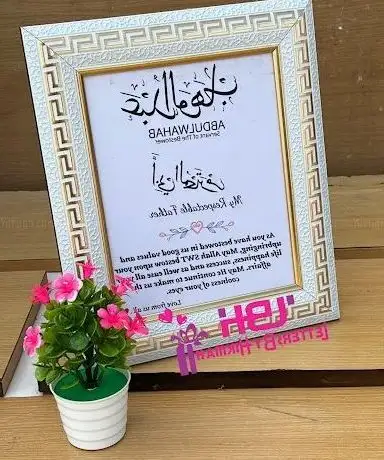 عبدالوهاب
ABDULWAHAB
Servant of The Bestower
أبي المحترم
My Respectable Father
As you have bestowed in us good values and
upbringing, May Allah SWT bestow upon your
life happiness, success and as well as ease all your
affairs. He May continue to make us the
coolness of your eyes.
Love from us all
LBH
LETTERSBYHIKMAH